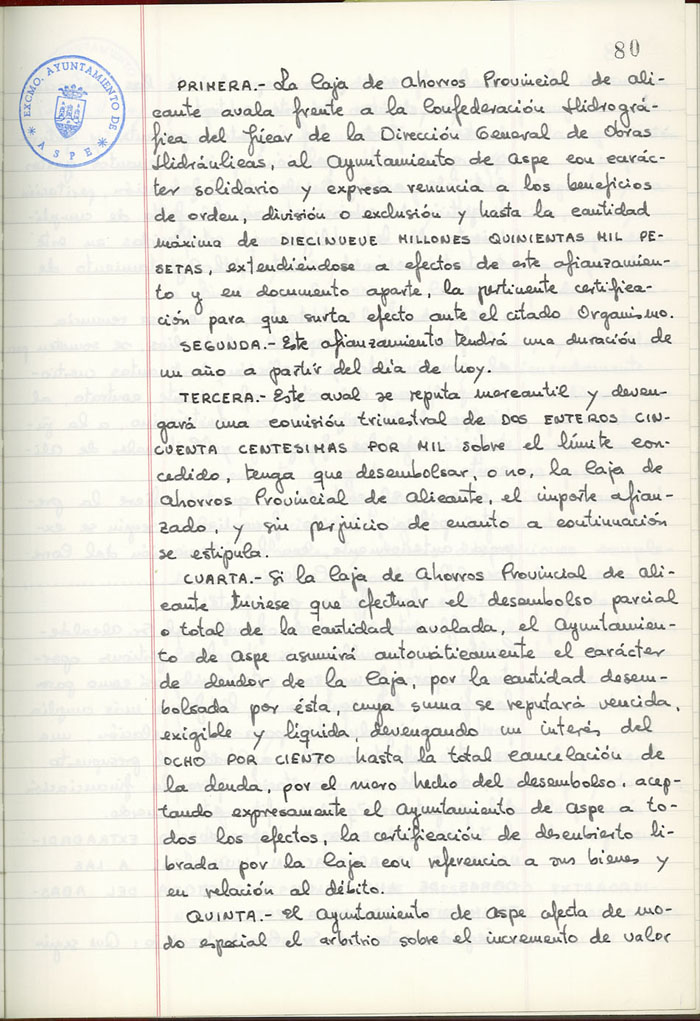 80
EXCMO. AYUNTAMIENTO DE
ASPE
PRIMERA.- La Caja de Ahorros Provincial de Ali-
cante avala frente a la Confederación Hidrográ-
fica del Júcar de la Dirección General de Obras
Hidráulicas, al Ayuntamiento de Aspe con carác-
ter solidario y expresa renuncia a los beneficios
de orden, división o exclusión y hasta la cantidad
máxima de DIECINUEVE MILLONES QUINIENTAS MIL PE-
SETAS, extendiéndose a efectos de este afianzamien-
to y en documento aparte, la pertinente certifica-
ción para que surta efecto ante el citado Organismo.
SEGUNDA.- Este afianzamiento tendrá una duración de
un año a partir del día de hoy.
TERCERA.- Este aval se reputa mercantil y deven-
gará una comisión trimestral de DOS ENTEROS CIN-
CUENTA CENTESIMAS POR MIL sobre el límite con-
cedido, tenga que desembolsar, o no, la Caja de
Ahorros Provincial de Alicante, el importe afian-
zado, y sin perjuicio de cuanto a continuación
se estipula.
CUARTA.- Si la Caja de Ahorros Provincial de Ali-
cante tuviese que efectuar el desembolso parcial
o total de la cantidad avalada, el Ayuntamien-
to de Aspe asumirá automáticamente el carácter
de deudor de la Caja, por la cantidad desem-
bolsada por ésta, cuya suma se reputará vencida,
exigible y líquida, devengando un interés del
OCHO POR CIENTO hasta la total cancelación de
la deuda, por el mero hecho del desembolso, acep-
tando expresamente el Ayuntamiento de Aspe a to-
dos los efectos, la certificación de descubierto li-
brada por la Caja con referencia a sus bienes y
en relación al débito.
QUINTA.- El Ayuntamiento de Aspe afecta de mo-
do especial el arbitrio sobre el incremento de valor